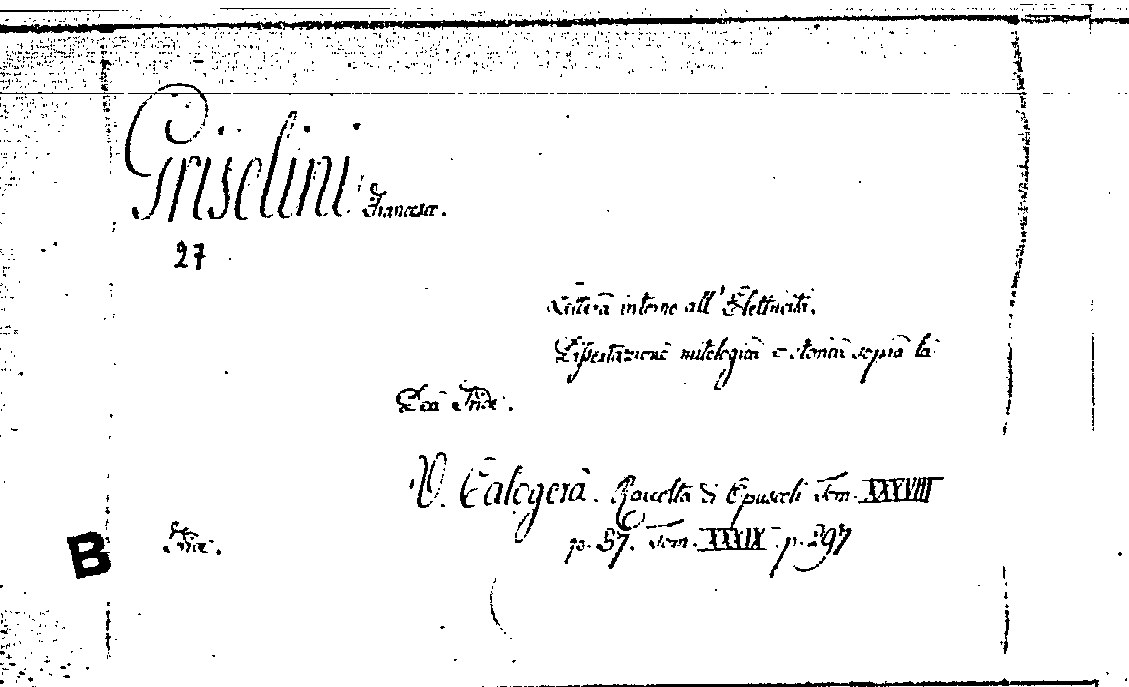 Griselini Francesco.
27
Lettera intorno all'Elettricità.
Dissertazione mitologica e storica sopra la
Dea Iride.
V. Calogerà. Raccolta di Opuscoli Tom. XXXVIII
p. 57. Tom. XXXIX. p. 297
B